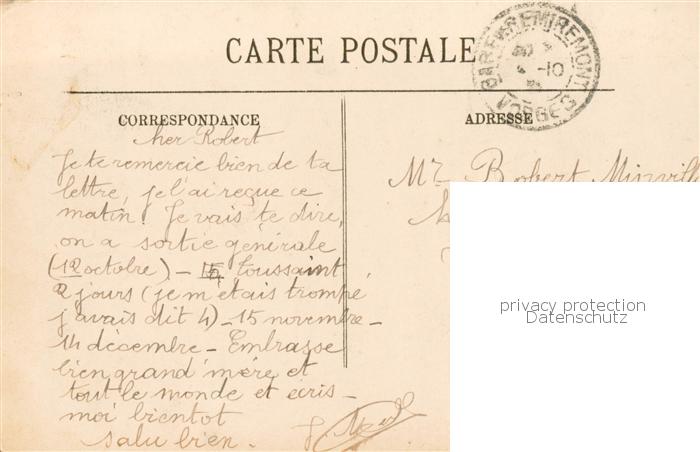 CARTE POSTALE
GARE DE REMIREMONT
-10
VOSGES
CORRESPONDANCE
ADRESSE
cher Robert
Je te remercie bien de ta
lettre, je l'ai reçue ce
matin. Je vais te dire,
on a sortie générale
(12 octobre) - Toussaint
2 jours (je m'étais trompé
j'avais dit 4) - 15 novembre -
14 décembre - Embrasse
bien grand'mère et
tout le monde et écris -
moi bientot
Salu bien.
Mr Robert
privacy protection
Datenschutz